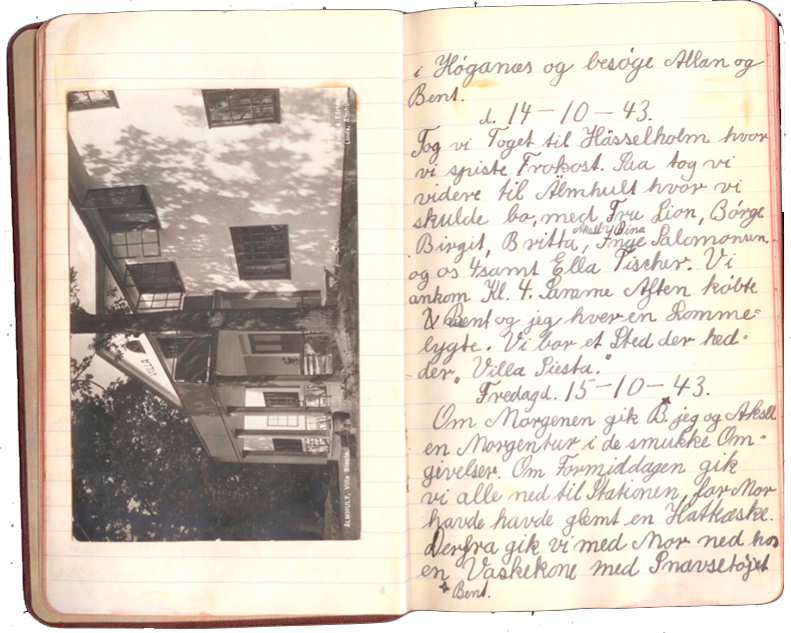 ÄLMHULT, Villa Siesta.
VILLA
i Höganæs og besöge Allan og
Bent.
d. 14-10-43.
Tog vi Toget til Hässelholm hvor
vi spiste Frokost. Saa tog vi
videre til Älmhult hvor vi
skulde bo, med Fru Lion, Börge
Birgit, Britta, Inge Salomonsen
Aksel, Bina
og os 4 samt Ella Fischer. Vi
ankom Kl. 4. Samme Aften købte
Bent og jeg hver en Lomme=
lygte. Vi bor et Sted der hed=
der „Villa Siesta."
Fredag d. 15-10-43.
Om Morgenen gik B.* jeg og Aksel
en Morgentur i de smukke Om=
givelser. Om Formiddagen gik
vi alle ned til Stationen, for Mor
havde havde glemt en Hatteæske.
Derfra gik vi med Mor ned hos
en Vaskekone med Snavsetöjet
* Bent.